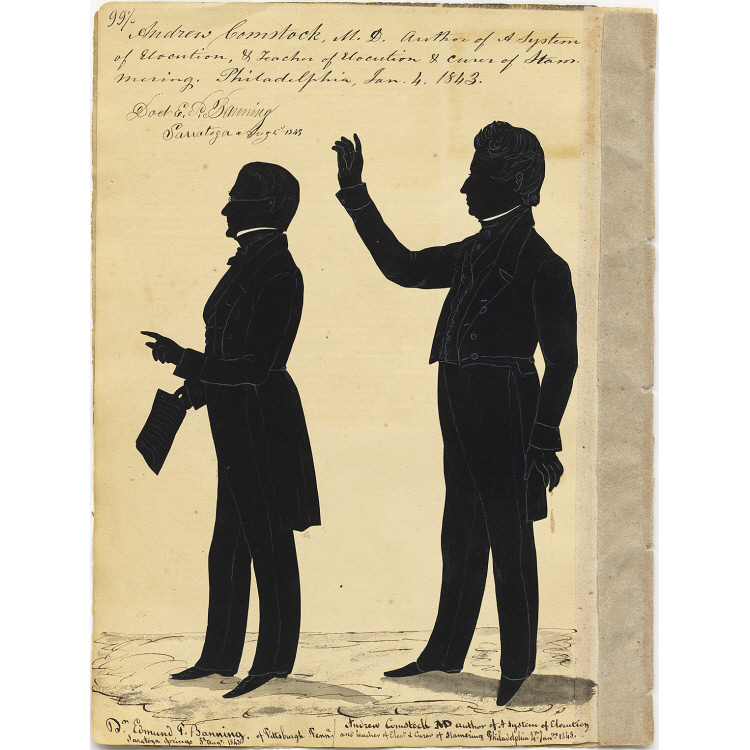 99½
Andrew Comstock, M. D. Author of A System
of Elocution, & Teacher of Elocution & curer of Stam-
mering. Philadelphia, Jan. 4. 1843.
Doct E. P. Banning
Sarratoga Aug 5 1843
Dr Edmund P. Banning, of Pittsburgh Penn.
Saratoga Springs 5th Aug. 1843
Andrew Comstock MD author of A System of Elocution
and teacher of Eloc.n & Curer of Stamering Philadelphia 4th Jany 1843.